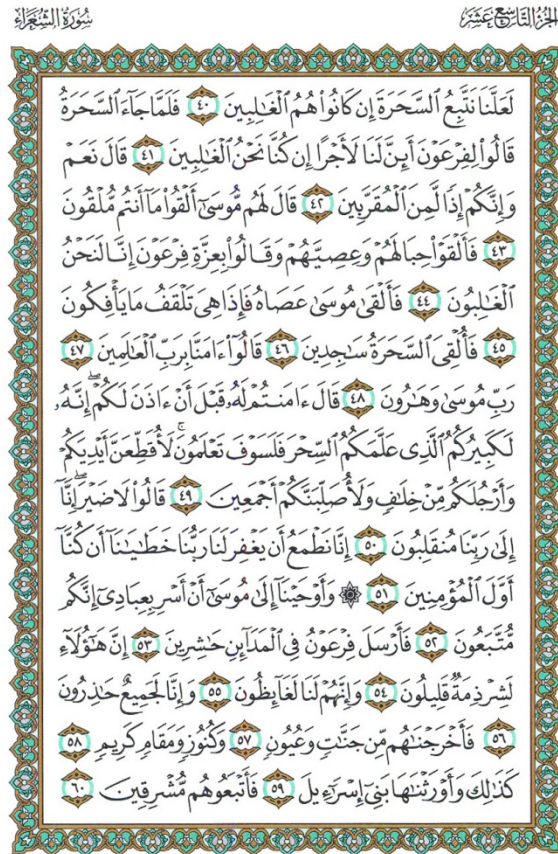 الجزء التاسع عشر
سورة الشعراء
لَعَلَّنَا نَتَّبِعُ السَّحَرَةَ إِن كَانُوا۟ هُمُ ٱلْغَٰلِبِينَ ٤٠ فَلَمَّا جَآءَ السَّحَرَةُ
قَالُوا۟ لِفِرْعَوْنَ أَئِنَّ لَنَا لَأَجْرًا إِن كُنَّا نَحْنُ ٱلْغَٰلِبِينَ ٤١ قَالَ نَعَمْ
وَإِنَّكُمْ إِذًا لَّمِنَ ٱلْمُقَرَّبِينَ ٤٢ قَالَ لَهُم مُّوسَىٰٓ أَلْقُوا۟ مَآ أَنتُم مُّلْقُونَ
٤٣ فَأَلْقَوْا۟ حِبَالَهُمْ وَعِصِيَّهُمْ وَقَالُوا۟ بِعِزَّةِ فِرْعَوْنَ إِنَّا لَنَحْنُ
ٱلْغَٰلِبُونَ ٤٤ فَأَلْقَىٰ مُوسَىٰ عَصَاهُ فَإِذَا هِىَ تَلْقَفُ مَا يَأْفِكُونَ
٤٥ فَأُلْقِىَ السَّحَرَةُ سَٰجِدِينَ ٤٦ قَالُوٓا۟ ءَامَنَّا بِرَبِّ ٱلْعَٰلَمِينَ ٤٧
رَبِّ مُوسَىٰ وَهَٰرُونَ ٤٨ قَالَ ءَامَنتُمْ لَهُۥ قَبْلَ أَنْ ءَاذَنَ لَكُمْ ۖ إِنَّهُۥ
لَكَبِيرُكُمُ ٱلَّذِى عَلَّمَكُمُ السِّحْرَ فَلَسَوْفَ تَعْلَمُونَ ۚ لَأُقَطِّعَنَّ أَيْدِيَكُمْ
وَأَرْجُلَكُم مِّنْ خِلَٰفٍ وَلَأُصَلِّبَنَّكُمْ أَجْمَعِينَ ٤٩ قَالُوا۟ لَا ضَيْرَ ۖ إِنَّآ
إِلَىٰ رَبِّنَا مُنقَلِبُونَ ٥٠ إِنَّا نَطْمَعُ أَن يَغْفِرَ لَنَا رَبُّنَا خَطَٰيَٰنَآ أَن كُنَّآ
أَوَّلَ ٱلْمُؤْمِنِينَ ٥١ ۞ وَأَوْحَيْنَآ إِلَىٰ مُوسَىٰٓ أَنْ أَسْرِ بِعِبَادِىٓ إِنَّكُم
مُّتَّبَعُونَ ٥٢ فَأَرْسَلَ فِرْعَوْنُ فِى ٱلْمَدَآئِنِ حَٰشِرِينَ ٥٣ إِنَّ هَٰٓؤُلَآءِ
لَشِرْذِمَةٌ قَلِيلُونَ ٥٤ وَإِنَّهُمْ لَنَا لَغَآئِظُونَ ٥٥ وَإِنَّا لَجَمِيعٌ حَٰذِرُونَ
٥٦ فَأَخْرَجْنَٰهُم مِّن جَنَّٰتٍ وَعُيُونٍ ٥٧ وَكُنُوزٍ وَمَقَامٍ كَرِيمٍ ٥٨
كَذَٰلِكَ وَأَوْرَثْنَٰهَا بَنِىٓ إِسْرَٰٓءِيلَ ٥٩ فَأَتْبَعُوهُم مُّشْرِقِينَ ٦٠